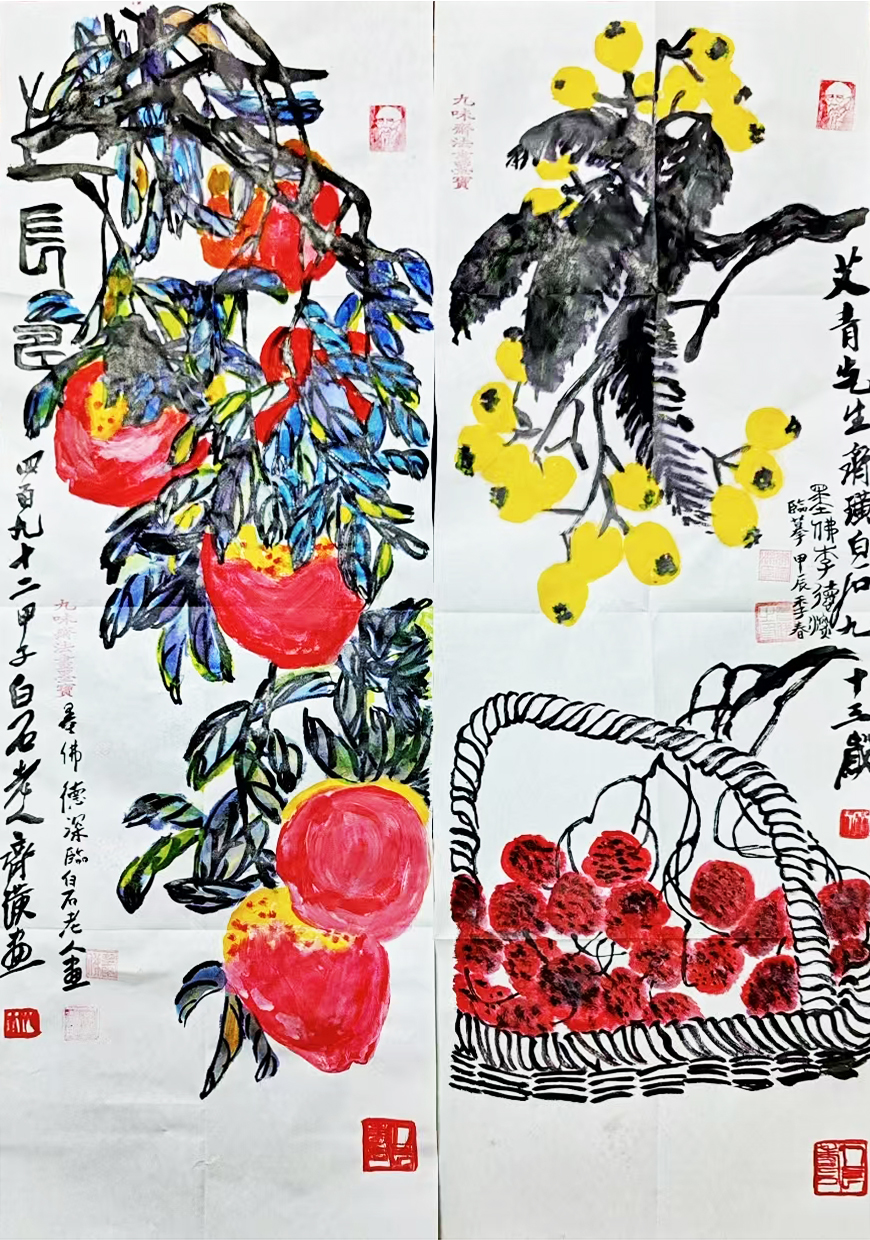 艾青先生齊璜白石九十三歲
墨佛李德燦
臨摹 甲辰季春
九味齋法書畫寶
長邑
四百九十二甲子白石老人齊璜畫
九味齋法書畫寶
墨佛德深臨白石老人畫